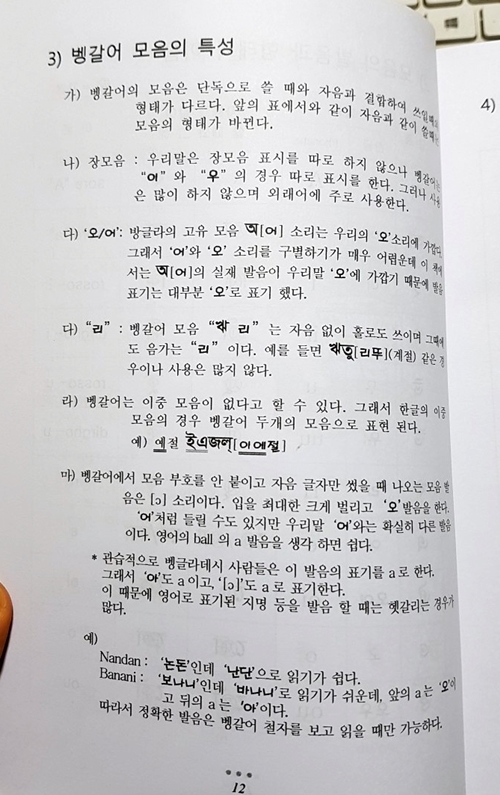 3) 벵갈어 모음의 특성
가) 벵갈어의 모음은 단독으로 쓸 때와 자음과 결합하여 쓰일때의
형태가 다르다. 앞의 표에서와 같이 자음과 같이 쓸때는
모음의 형태가 바뀐다.
나) 장모음 : 우리말은 장모음 표시를 따로 하지 않으나 벵갈어는
“이” 와 “우” 의 경우 따로 표시를 한다. 그러나 사용
은 많이 하지 않으며 외래어에 주로 사용한다.
다) ‘오/어’: 방글라의 고유 모음 অ[어] 소리는 우리의 ‘오’소리에 가깝다.
그래서 ‘어’와 ‘오’ 소리를 구별하기가 매우 어렵운데 이 책에
서는 অ[어]의 실재 발음이 우리말 ‘오’에 가깝기 때문에 발음
표기는 대부분 ‘오’로 표기 했다.
다) “리” : 벵갈어 모음 “ঋ 리” 는 자음 없이 홀로도 쓰이며 그때에
도 음가는 “리” 이다. 예를 들면 ঋতু[리뚜](계절) 같은 경
우이나 사용은 많지 않다.
라) 벵갈어는 이중 모음이 없다고 할 수 있다. 그래서 한글의 이중
모음의 경우 벵갈어 두개의 모음으로 표현 된다.
예) 예절 ইএজল[이에절]
마) 벵갈어에서 모음 부호를 안 붙이고 자음 글자만 썼을 때 나오는 모음 발
음은 [ɔ] 소리이다. 입을 최대한 크게 벌리고 ‘오’발음을 한다.
‘어’처럼 들릴 수도 있지만 우리말 ‘어’와는 확실히 다른 발음
이다. 영어의 ball 의 a 발음을 생각 하면 쉽다.
* 관습적으로 벵글라데시 사람들은 이 발음의 표기를 a로 한다.
그래서 ‘아’도 a 이고, ‘[ɔ]’도 a 로 표기한다.
이 때문에 영어로 표기된 지명 등을 발음 할 때는 헷갈리는 경우가
많다.
예)
Nandan : ‘논돈’인데 ‘난단’으로 읽기가 쉽다.
Banani : ‘보나니’인데 ‘바나니’로 읽기가 쉬운데, 앞의 a 는 ‘오’이
고 뒤의 a 는 ‘아’이다.
따라서 정확한 발음은 벵갈어 철자를 보고 읽을 때만 가능하다.
12
4)